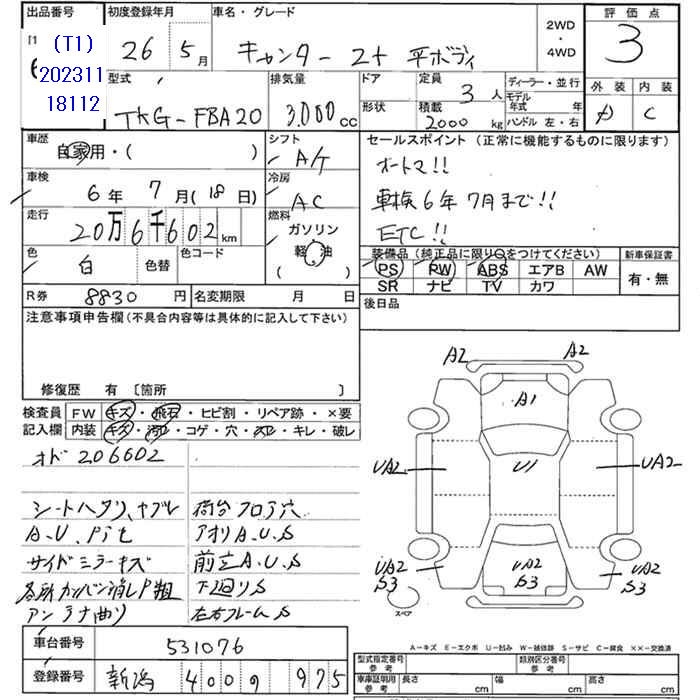 出品番号 初度登録年月 車名・グレード 2WD ・ 4WD 評価点
(T1) 26 5月 キャンター 2t 平ボディ 3
202311
18112
型式 排気量 ドア 定員 3 人 ディーラー・並行 外装 内装
TKG-FBA20 3,000 cc 形状 積載 2000 kg モデル年式 年 ハンドル 左・右 C
車歴 自家用・( ) シフト A/T セールスポイント (正常に機能するものに限ります)
オートマ!!
車検 6年 7月(18日) 冷房 AC 車検6年7月まで!!
走行 20万6千602 km 燃料 ガソリン 軽油 ( ) ETC!!
色 白 色替 色コード 装備品 (純正品に限り○をつけてください) 新車保証書
PS PW ABS エアB AW 有・無
SR ナビ TV カワ
R券 8830 円 名変期限 月 日 後日品
注意事項申告欄 (不具合内容等は具体的に記入して下さい)
修復歴 有 〔箇所 〕
検査員 FW キズ・飛石・ヒビ割・リペア跡・×要
記入欄 内装 キズ・汚レ・コゲ・穴・スレ・キレ・破レ
オド 206602
シートヘタリ、ヤブレ 荷台フロア穴
A.U.Pit アオリA.U.S
サイドミラーキズ 前立A.U.S
各所カンバン消し跡 下回りS
アンテナ曲り 左右フレームS
A2 A2
A1
UA2 U1 UA2
UA2 S3 UA2 S3 UA2 S3
スペア
A-キズ E-エクボ U-凹み W-補修跡 S-サビ C-腐食 XX-交換済
車台番号 531076
登録番号 新潟 400 の 975
型式指定番号 参考 類別区分番号 参考
車庫証明用 参考 長さ cm 幅 cm 高さ cm